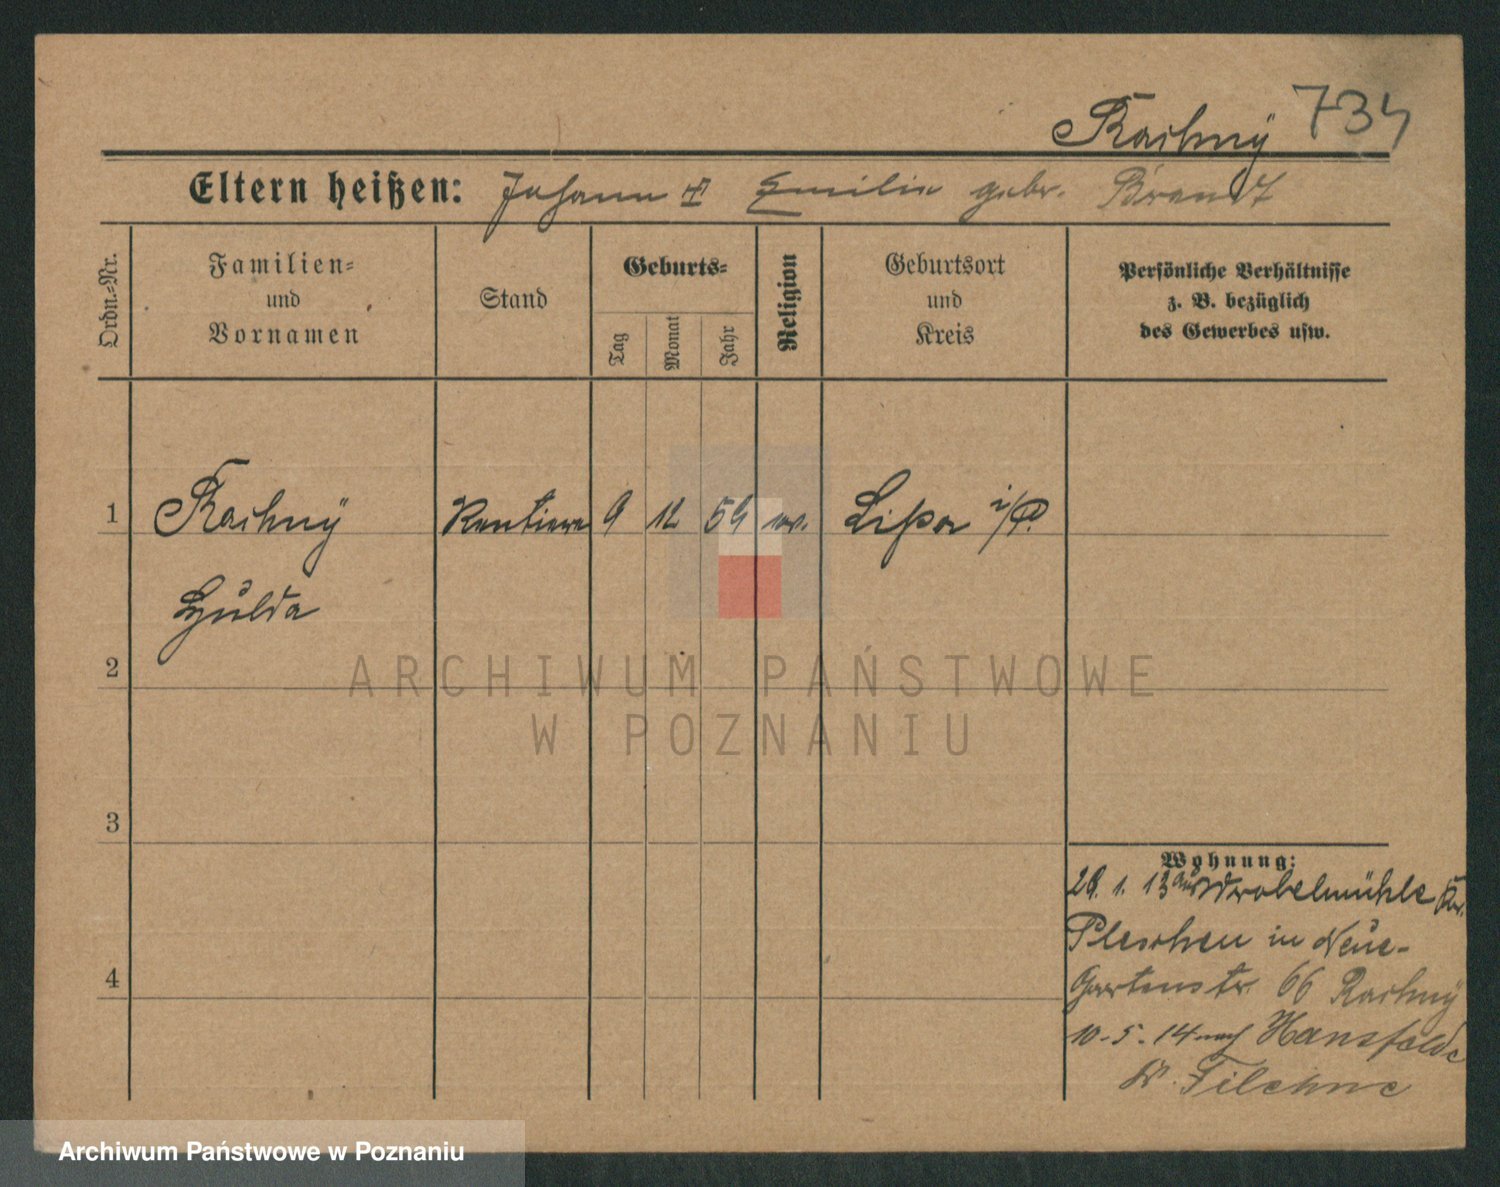 Rachuy 734
Eltern heißen: Johann † Emilie gebr. Brandt
Ordn.-Nr.
Familien-
und
Vornamen
Stand
Geburts-
Tag
Monat
Jahr
Religion
Geburtsort
und
Kreis
Persönliche Verhältnisse
z. B. bezüglich
des Gewerbes usw.
1 Rachuy Rentiere 9 12 59 ev. i/P.
Hulda
2
3
4
Wohnung:
1. 13 aus Wrobelmühle Kr.
Pleschen in Neue-
Gartenstr. 66 Rachuy
10. 5. 14 nach Hansfelde
Kr. Filehne
ARCHIWUM PAŃSTWOWE
W POZNANIU
Archiwum Państwowe w Poznaniu